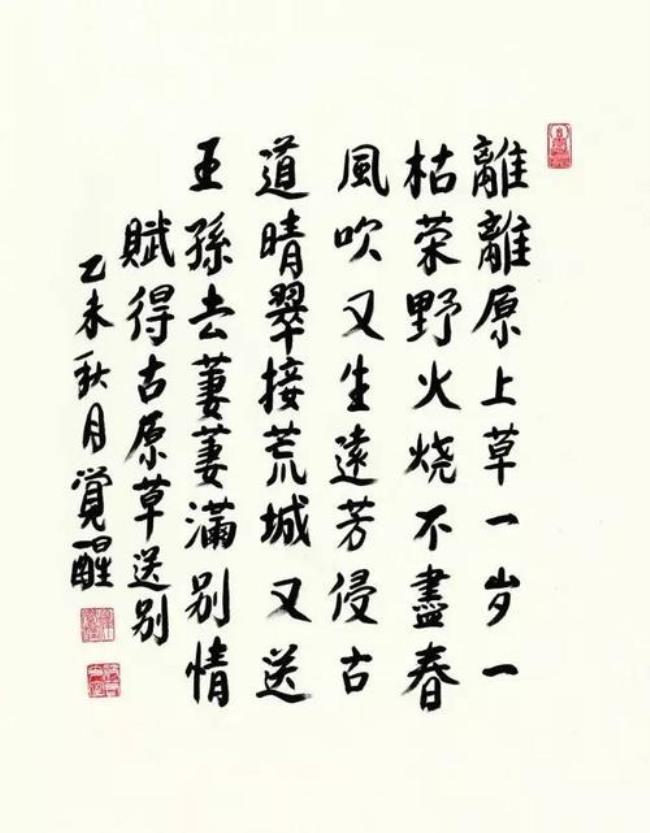 離離原上草一岁一
枯荣野火烧不盡春
風吹又生遠芳侵古
道晴翠接荒城又送
王孫去萋萋滿别情
賦得古原草送别
乙未秋月覺醒